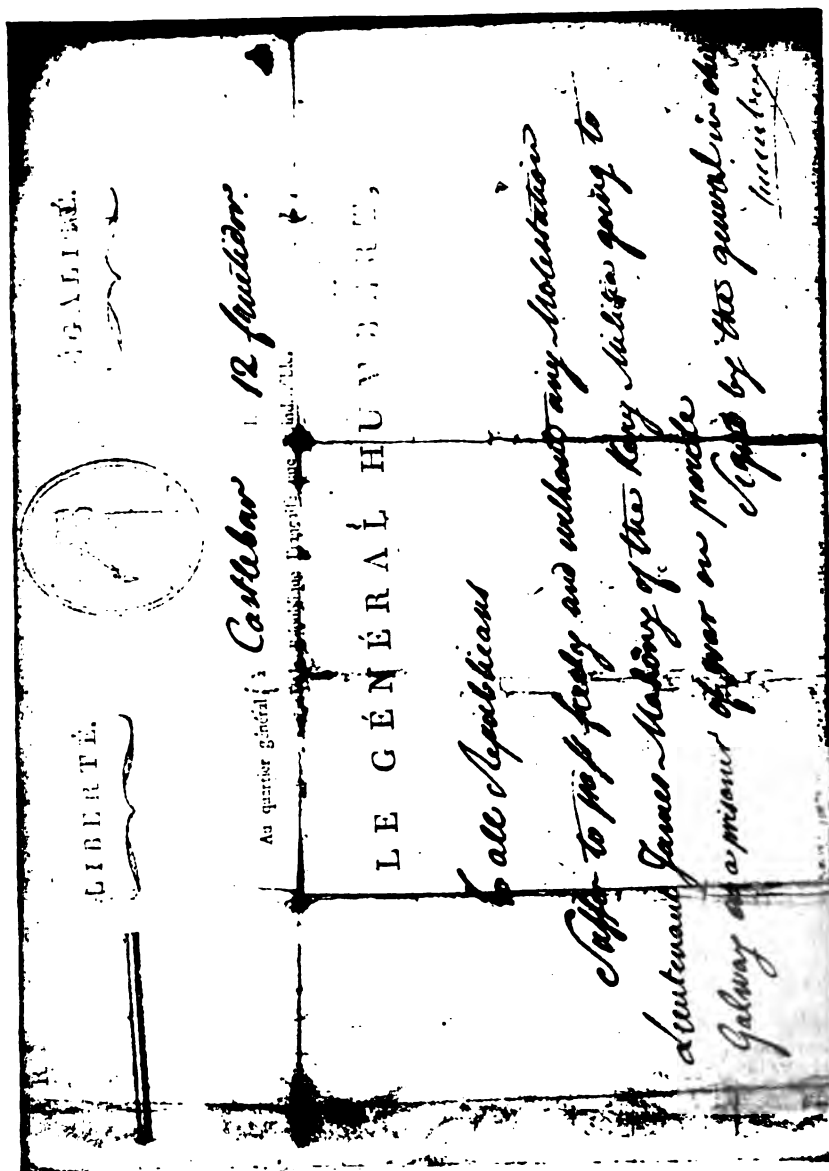 LIBERTÉ. ÉGALITÉ.
Au quartier général, à Castlebar l 12 fructidor.
République Française une
LE GÉNÉRAL HUMBERT,
To all Republicans
Suffer to pass freely and without any Molestation
Lieutenant James Mahony of the Kerry Militia going to
Galway as a prisoner of war on parole
Signed by the general in chief
Humbert